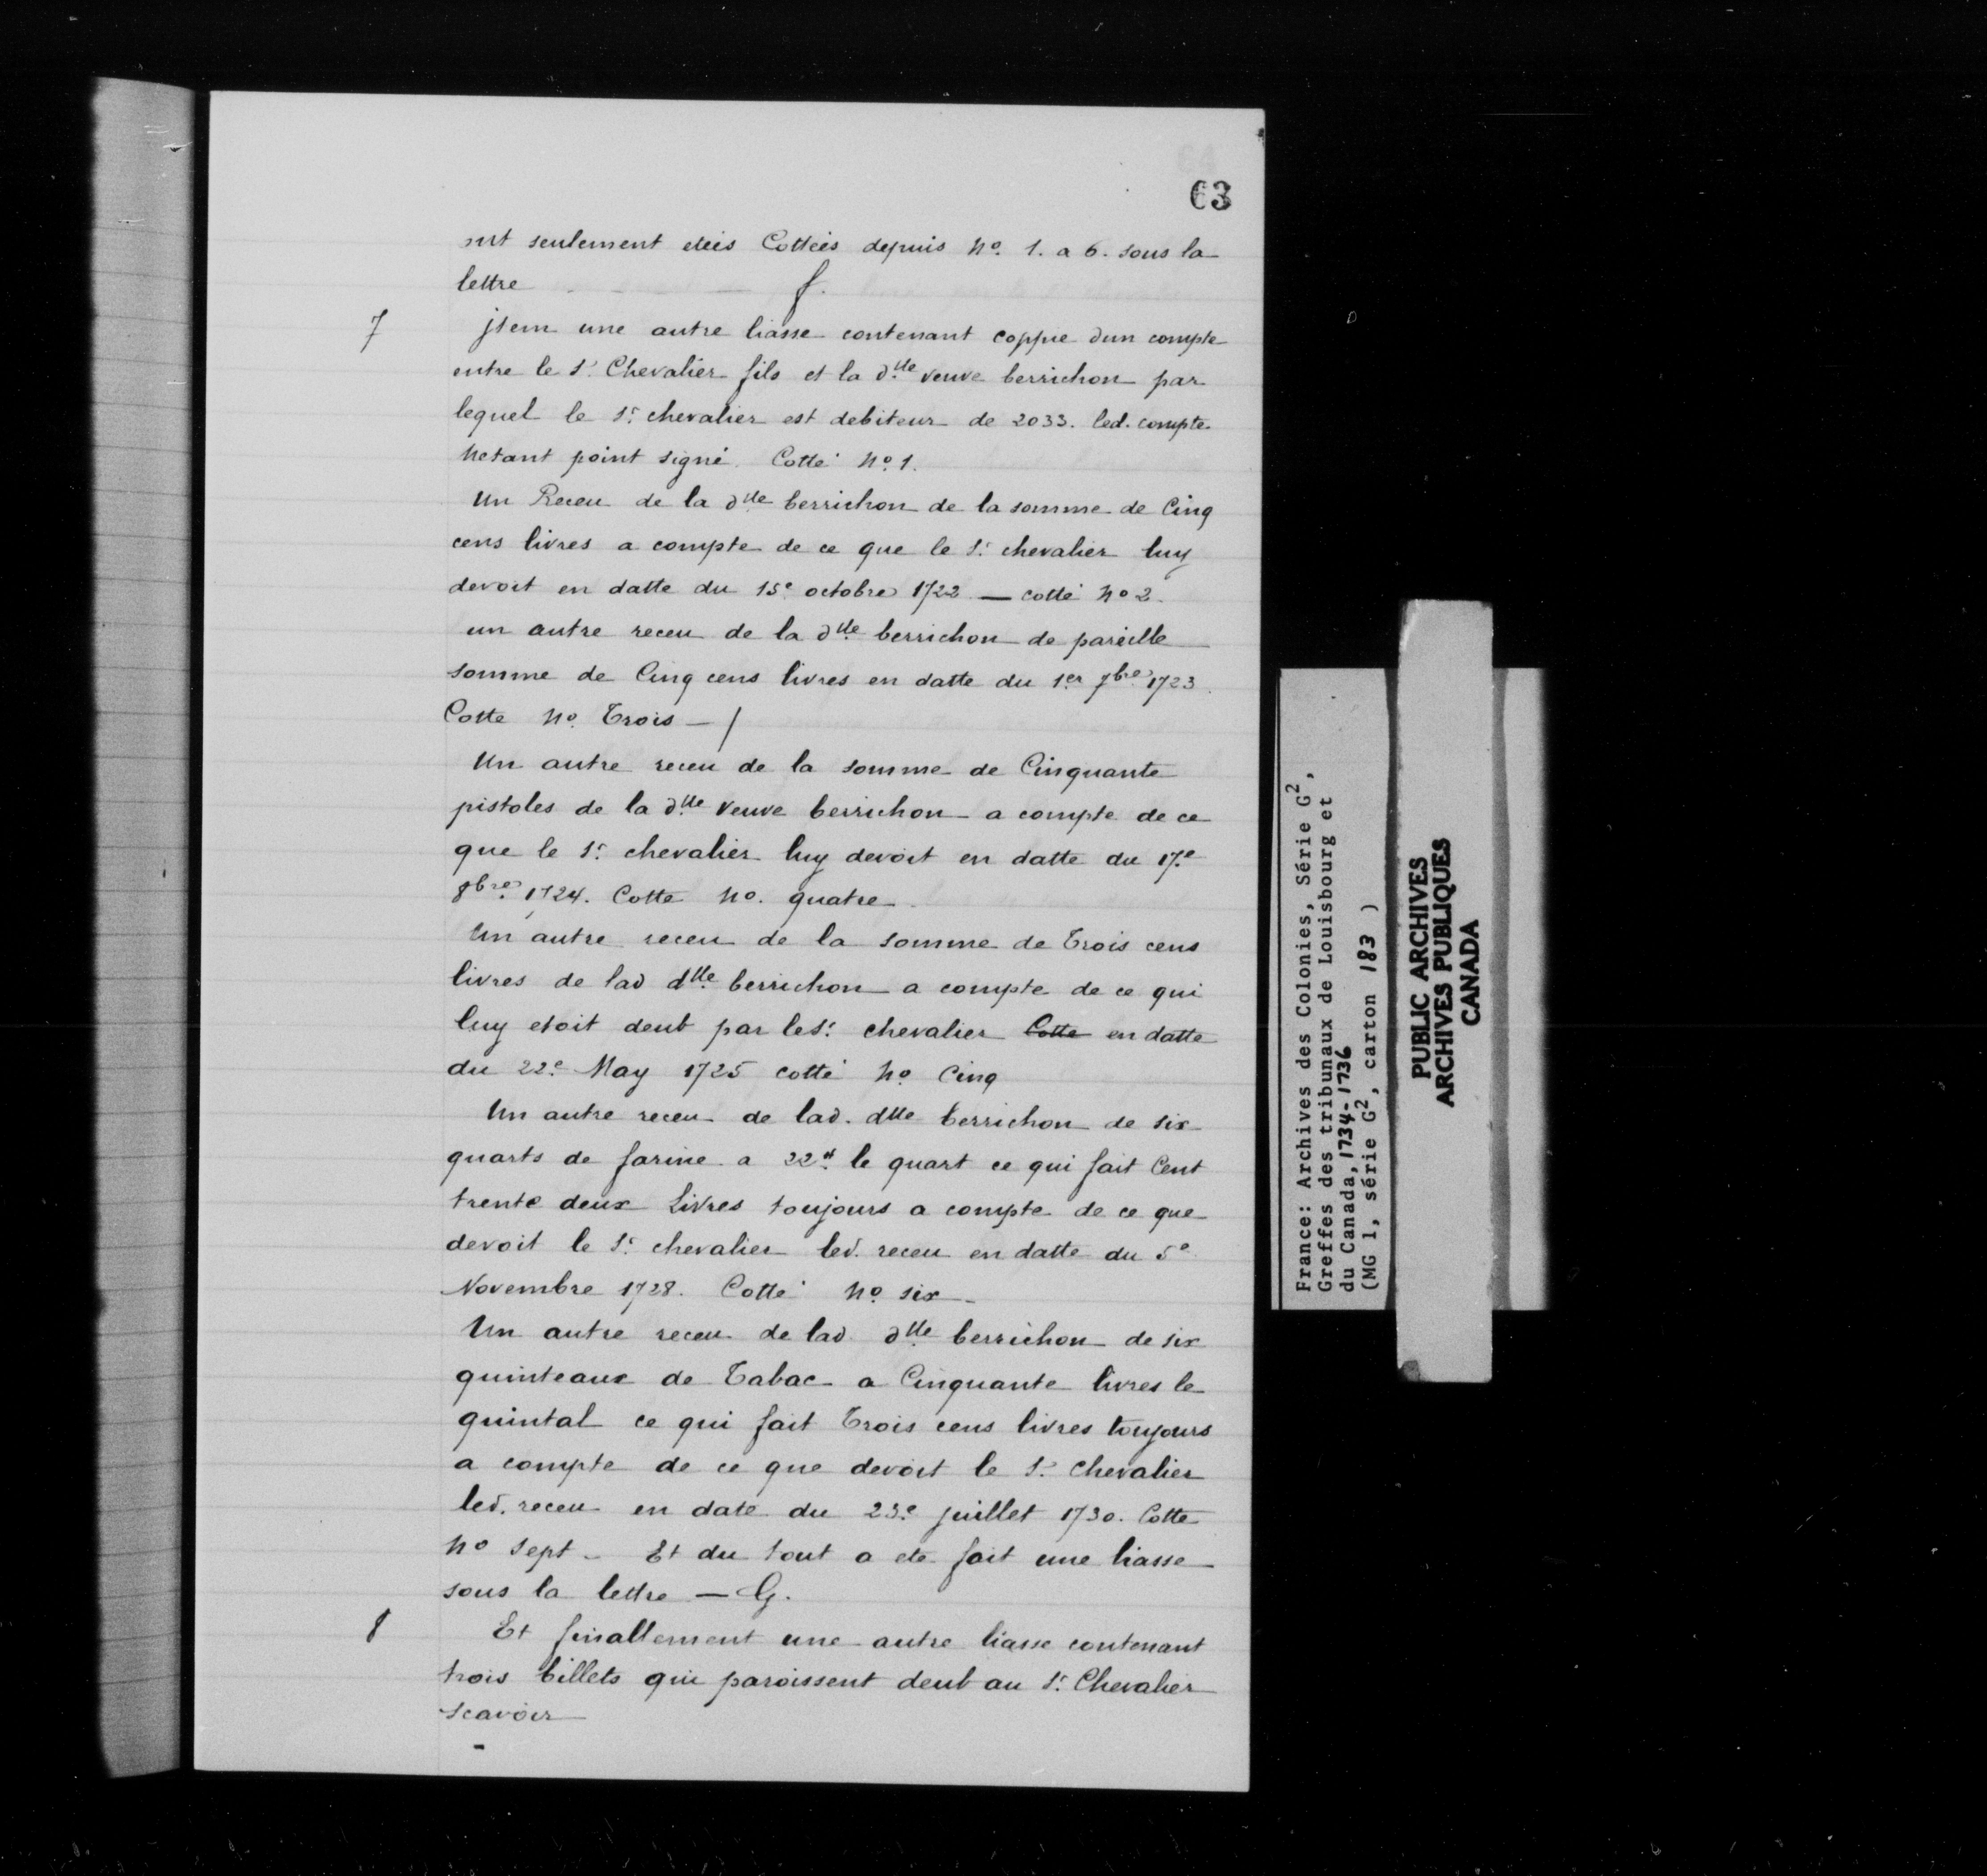 63
ont seulement eteis Cotteis depuis No. 1. a 6. sous la
lettre f.
7
jtem une autre liasse contenant coppie dun compte
entre le Sr. Chevalier fils et la dlle veuve berrichon par
lequel le Sr. chevalier est debiteur de 2033. led. compte
Netant point signé. Cotté No. 1.
Un Receu de la dlle berrichon de la somme de Cinq
cens livres a compte de ce que le Sr. chevalier luy
devoit en datte du 15e octobre 1722 — cotté No 2.
un autre receu de la dlle berrichon de pareille
somme de Cinq cens livres en datte du 1er 7bre 1723.
Cotte No. Trois — /
Un autre receu de la somme de Cinquante
pistoles de la dlle Veuve berrichon a compte de ce
que le Sr. chevalier luy devoit en datte du 17e
8bre 1724. Cotte No. quatre
Un autre receu de la somme de Trois cens
livres de lad dlle berrichon a compte de ce qui
luy etoit deub par le Sr. chevalier Cotte en datte
du 22e May 1725 cotté No. Cinq
Un autre receu de lad. dlle berrichon de six
quarts de farine a 22# le quart ce qui fait Cent
trente deux Livres toujours a compte de ce que
devoit le Sr. chevalier led. receu en datte du 5e
Novembre 1728. Cotté No. six
Un autre receu de lad dlle berrichon de six
quinteaux de Tabac a Cinquante livres le
quintal ce qui fait Trois cens livres toujours
a compte de ce que devoit le Sr. chevalier
led. receu en date du 23e juillet 1730. Cotte
No sept - Et du tout a ete fait une liasse
sous la lettre — G.
8
Et finallement une autre liasse contenant
trois billets qui paroissent deub au Sr. Chevalier
scavoir
-
France: Archives des Colonies, Série G2,
Greffes des tribunaux de Louisbourg et
du Canada, 1734-1736
(MG 1, série G2, carton 183 )
PUBLIC ARCHIVES
ARCHIVES PUBLIQUES
CANADA